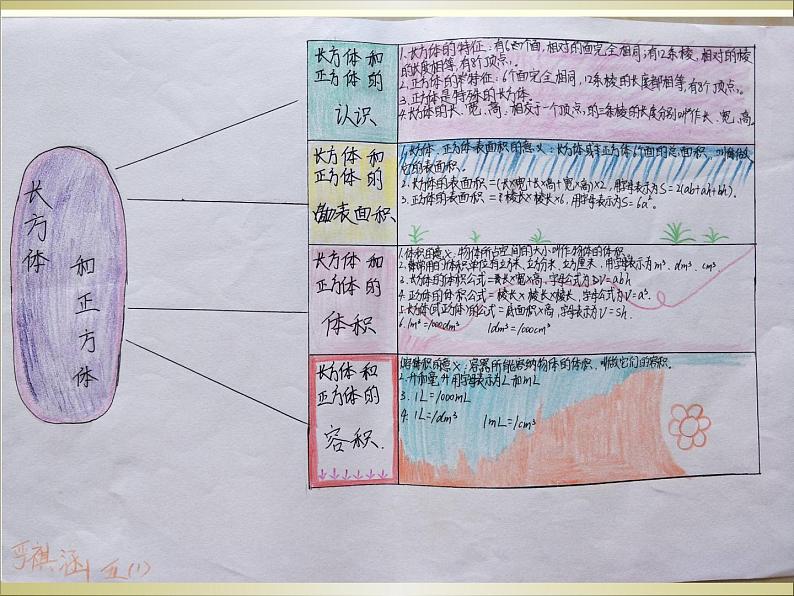 长方体
和正方体
长方体和
正方体的
认识
1.长方体的特征：有6个面,相对的面完全相同;有12条棱,相对的棱
的长度相等,有8个顶点。
2.正方体的特征：6个面完全相同,12条棱的长度都相等,有8个顶点。
3.正方体是特殊的长方体。
4.长方体的长、宽、高：相交于一个顶点的三条棱的长度分别叫作长、宽、高。
长方体和
正方体的
表面积
1.长方体、正方体表面积的意义：长方体或正方体6个面的总面积,叫做
它的表面积。
2.长方体的表面积=(长×宽+长×高+宽×高)×2,用字母表示为S=2(ab+ah+bh)。
3.正方体的表面积=棱长×棱长×6,用字母表示为S=6a²。
长方体和
正方体的
体积
1.体积的意义：物体所占空间的大小叫作物体的体积。
2.常用的体积单位有立方米、立方分米、立方厘米,用字母表示为m³、dm³、cm³。
3.长方体的体积公式=长×宽×高,字母公式为V=abh
4.正方体的体积公式=棱长×棱长×棱长,字母公式为V=a³。
5.长方体(正方体)的公式=底面积×高,字母表示为V=sh。
6.1m³=1000dm³ 1dm³=1000cm³
长方体和
正方体的
容积.
容积的意义：容器所能容纳物体的体积,叫做它们的容积。
2.升和毫升用字母表示为L和mL
3.1L=1000mL
4.1L=1dm³ 1mL=1cm³
祺涵 五(1)